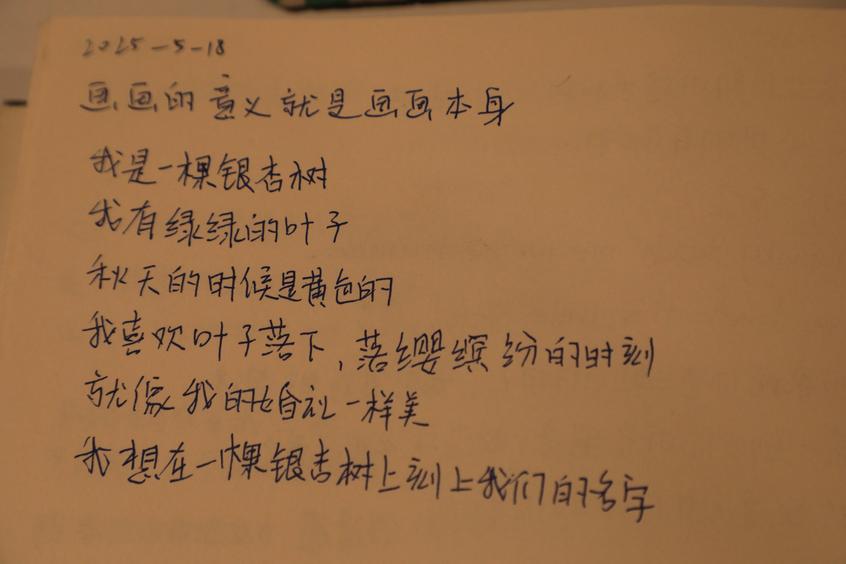 2025-5-18
画画的意义就是画画本身
我是一棵银杏树
我有绿绿的叶子
秋天的时候是黄色的
我喜欢叶子落下，落缨缤纷的时刻
就像我的婚礼一样美
我想在一棵银杏树上刻上我们的名字